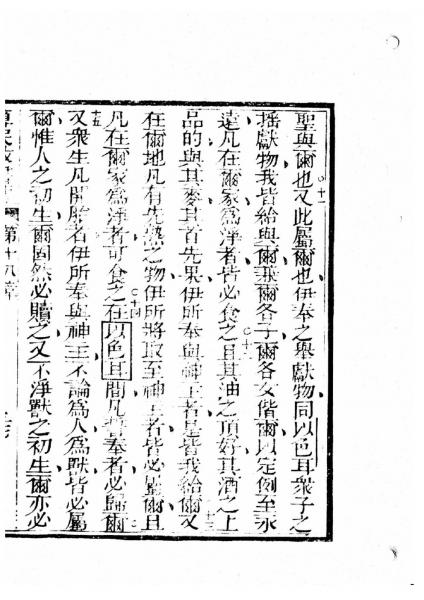 聖與爾也又此屬爾也伊奉之舉獻物同以色耳衆子之
搖獻物我皆給與爾及爾各子爾各女偕爾以定例至永
遠凡在爾家爲淨者皆必食之且其油之頂好其酒之上
品的與其麥其首先果伊所奉與神主者是皆我給爾又
在爾地凡有先熟之物伊所將取至神主者皆必屬爾且
凡在爾家爲淨者可食之在以色耳間凡奉者必歸爾
又衆生凡開胎者伊所奉與神主不論爲人爲獸皆必屬
爾惟人之初生爾固然必贖之又不淨獸之初生爾亦必
第十八章